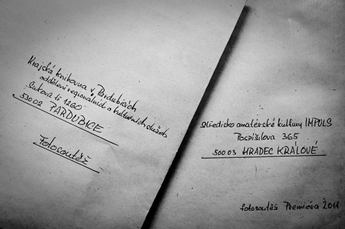 Krajská knihovna v Pardubicích
oddělení regionálních a kulturních služeb
1260
530 02 PARDUBICE
Fotosoutěž
Středisko amatérské kultury IMPULS
365
500 03 HRADEC KRÁLOVÉ
fotosoutěž Premiéra 2011